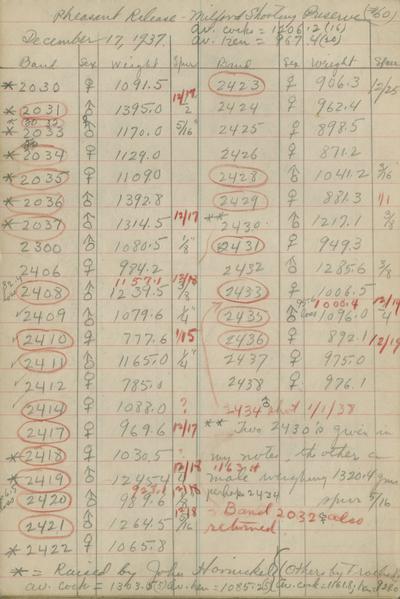 Pheasant Release - Milford Shooting Preserve (#60)
December 17, 1937. av. cocks = 1206.2 (16)
av. hen = 967.4 (20)
Band Sex Weight Spur Band Sex Weight Spur
* 2030 ♀ 1091.5 2423 ♀ 906.3 12/25
* 2031 ♂ 1395.0 12/17 2424 ♀ 962.4
* 2032 ♀
* 2033 ♂ 1170.0 5/16" 2425 ♀ 898.5
* 2034 ♀ 1129.0 2426 ♀ 871.2
* 2035 ♀ 1109.0 2428 ♂ 1041.2 3/16"
* 2036 ♂ 1392.8 2429 ♀ 881.3 1/1
* 2037 ♂ 1314.5 12/17 ** 2430 ♂ 1217.1 3/8
2300 ♂ 1080.5 1/8" 2431 ♀ 949.3
2406 ♀ 984.2 2432 ♂ 1285.6 3/8
1157.1 12/18
2408 ♂ 1239.5 3/8 2433 ♀ 1006.5
1000.4 12/19
2409 ♂ 1079.6 1/4" 2435 ♂ 1096.0 1/4"
2410 ♀ 777.6 1/15 2436 ♀ 892.1 12/19
2411 ♂ 1165.0 1/4" 2437 ♀ 975.0
2412 ♀ 785.0 2438 ♀ 976.1
2414 ♀ 1088.0 ? 2434 ♂ shot 1/1/38
2417 ♀ 969.6 12/17 ** Two 2430's given in
* 2418 ♀ 1030.5 ? my notes, the other a
1163.4
* 2419 ♂ 1245.4 12/18 male weighing 1320.4 gms
2420 ♀ 989.6 12/18 perhaps 2424 spur 5/16
Band 2032 ♀ also
2421 ♂ 1264.5 returned
* 2422 ♀ 1065.8
* = Raised by John Others by
av. cock = av. hen = 1085.2 av. cock =